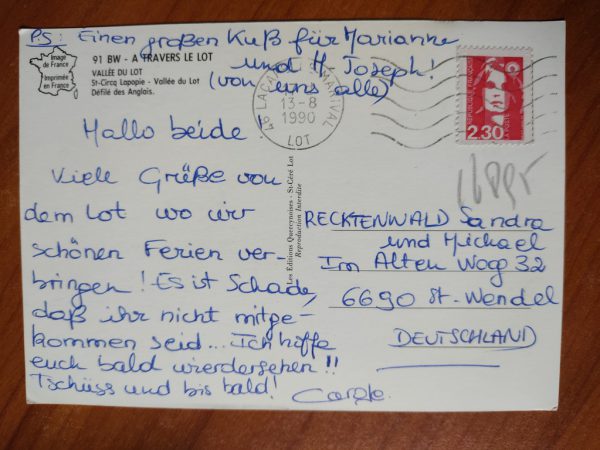 PS: Einen großen Kuß für Marianne
und H. Joseph!
(von uns alle)
Image
de France
Imprimée
en France
91 BW - A TRAVERS LE LOT
VALLÉE DU LOT
St-Circq Lapopie - Vallée du Lot
Défilé des Anglais.
13-8
1990
LOT
REPUBLIQUE FRANÇAISE
LA POSTE
2,30
Hallo beide!
Viele Grüße von
dem Lot wo wir
schönen Ferien ver-
bringen! Es ist Schade,
daß ihr nicht mitge-
kommen seid... Ich hoffe
euch bald wierdersehen!!
Tschüss und bis bald!
Les Editions Quercynoises - St-Céré Lot
Reproduction Interdite
RECKTENWALD Sandra
und Michael
Im Alten Woog 32
6690 St. Wendel
DEUTSCHLAND